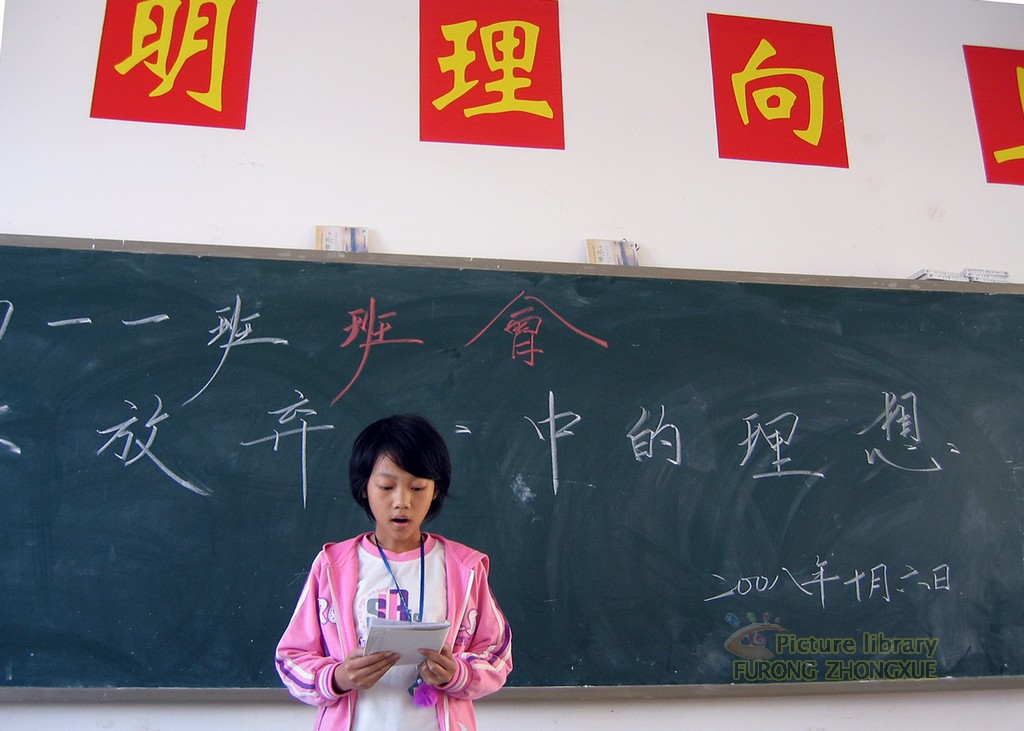 明理向
一一班 班會
放弃 中的理想
二00八年十月六日
Picture library
FURONG ZHONGXUE